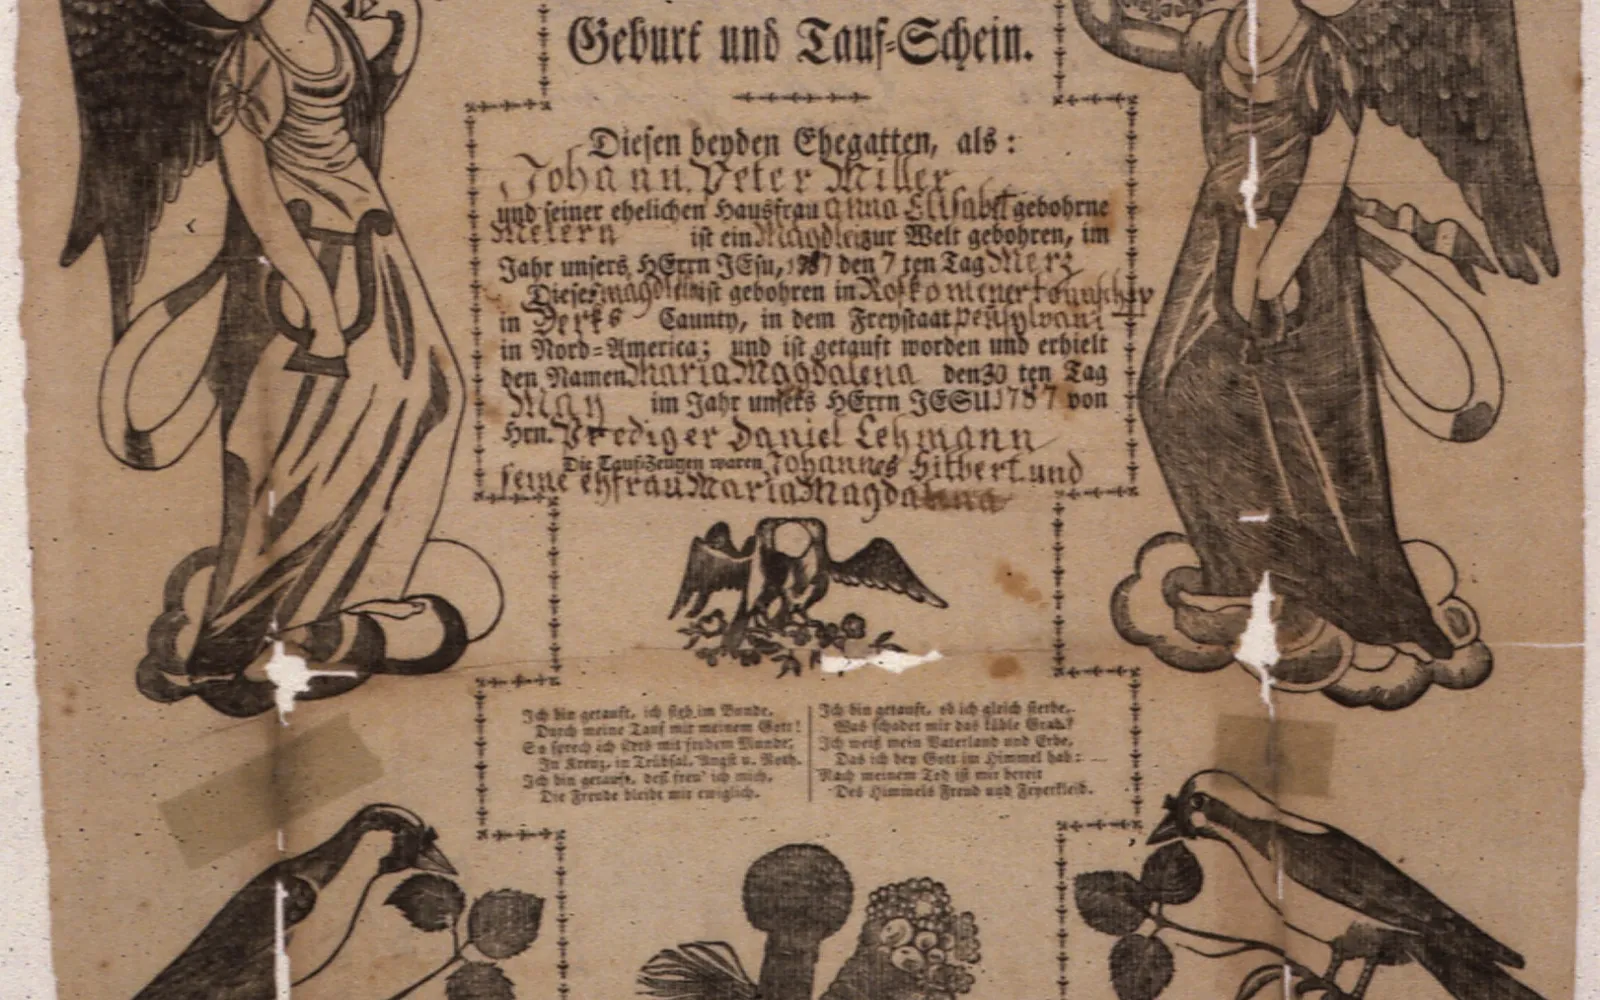 Geburt und Tauf-Schein.
Diesen beyden Ehegatten, als:
Johann Peter Miller
und seiner ehelichen Hausfrau Anna Elisabet gebohrne
Meiern ist ein Magdlein zur Welt gebohren, im
Jahr unsers HErrn JEsu, 1787 den 7 ten Tag Merz
Dieses magdlein ist gebohren in Rockomener Tounschip
in Berks Caunty, in dem Freystaat Pensylvani
in Nord-America; und ist getauft worden und erhielt
den Namen Maria Magdalena den 30 ten Tag
May im Jahr unsers HErrn JESU 1787 von
Hrn. Prediger Daniel Lehmann
Die Taufzeugen waren Johannes Hilbert und
seine ehfrau Maria Magdalena
Ich bin getauft, ich steh im Bunde,
Durch meine Tauf mit meinem Gott!
So sprech ich stets mit frohem Munde;
In Kreuz, in Trübsal, Angst u. Noth.
Ich bin getauft, deß freu' ich mich,
Die Freude bleibt mir ewiglich.
Ich bin getauft, ob ich gleich sterbe,
Was schadet mir das kühle Grab?
Ich weiß mein Vaterland und Erbe,
Das ich bey Gott im Himmel hab:
Nach meinem Tod ist mir bereit
Des Himmels Freud und Feyerkleid.